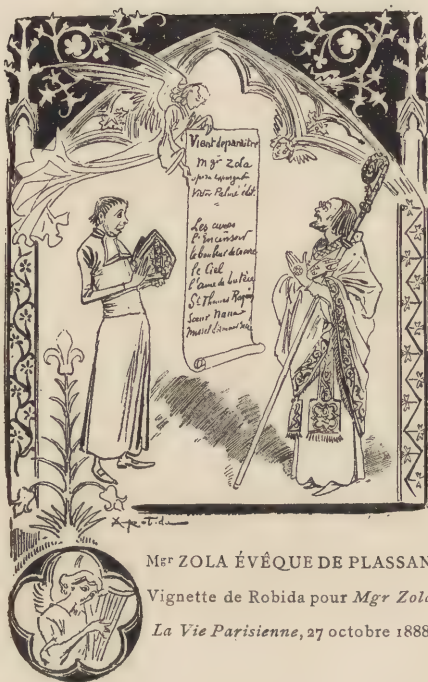 Vient de paraître
Mgr Zola
Victor Palmé édit.
Les curés
l'Encensoir
le bonheur de
le Ciel
l'âme de
St Thomas Raquin
Sœur Nana
A. Robida
Mgr ZOLA ÉVÊQUE DE PLASSAN
Vignette de Robida pour Mgr Zola
La Vie Parisienne, 27 octobre 1888